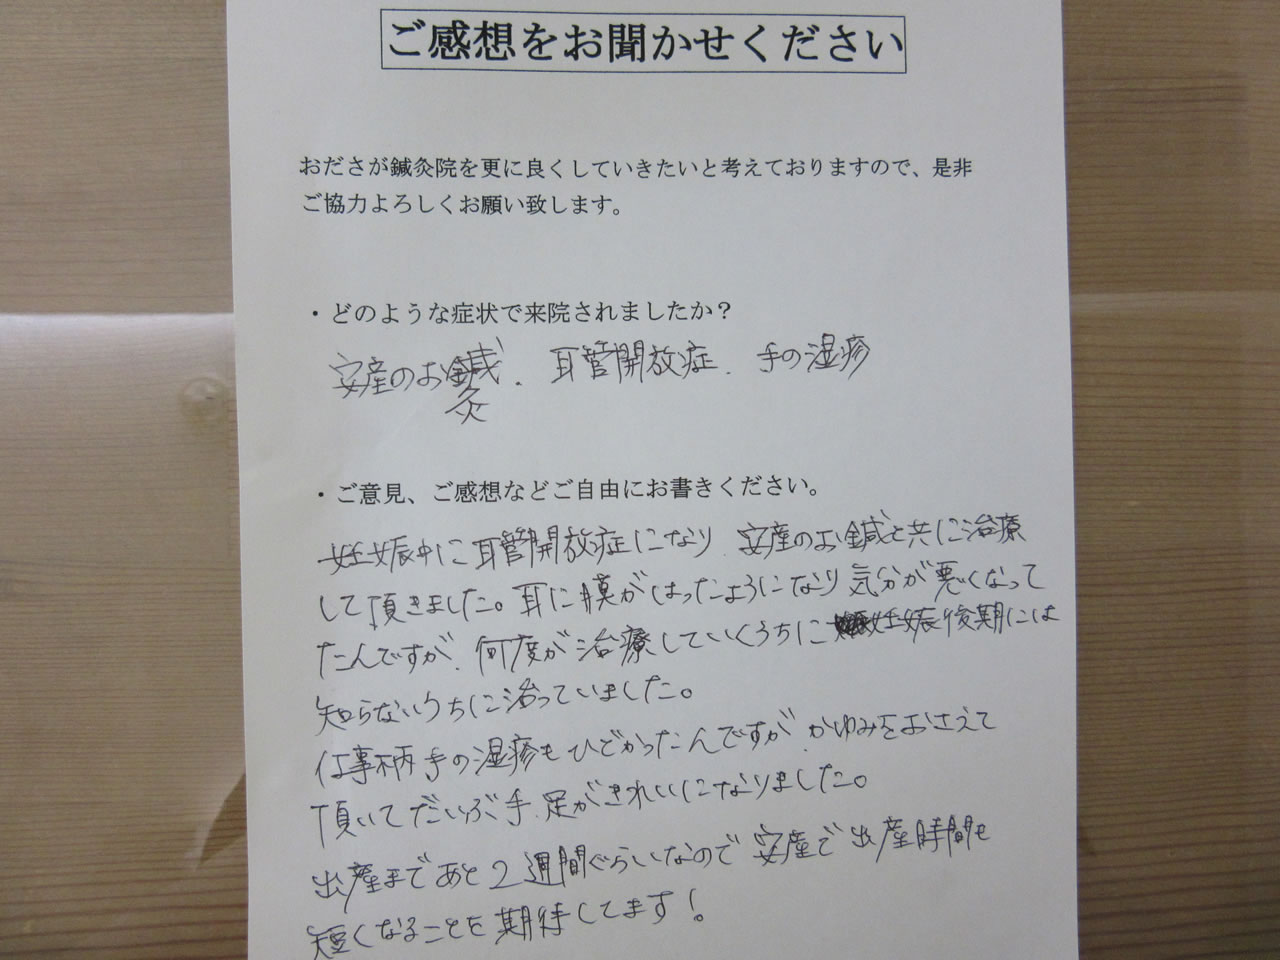 ご感想をお聞かせください
おださが鍼灸院を更に良くしていきたいと考えておりますので、是非
ご協力よろしくお願い致します。
・どのような症状で来院されましたか？
安産のお鍼灸、耳管開放症、手の湿疹
・ご意見、ご感想などご自由にお書きください。
妊娠中に耳管開放症になり、安産のお鍼と共に治療
して頂きました。耳に膜がはったようになり気分が悪くなって
たんですが、何度か治療していくうちに妊娠後期には
知らないうちに治っていました。
仕事柄手の湿疹もひどかったんですが、かゆみをおさえて
頂いてだいぶ手、足がきれいになりました。
出産まであと2週間ぐらいなので安産で出産時間も
短くなることを期待してます！